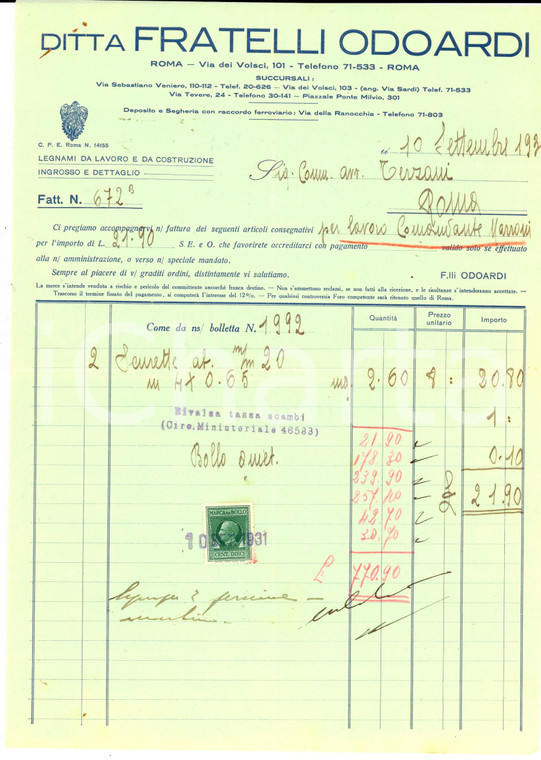 DITTA FRATELLI ODOARDI
ROMA — Via dei Volsci, 101 - Telefono 71-533 - ROMA
SUCCURSALI:
Via Sebastiano Veniero, 110-112 - Telef. 20-626 — Via dei Volsci, 103 - (ang. Via Sardi) Telef. 71-533
Via Tevere, 24 - Telefono 30-141 — Piazzale Ponte Milvio, 301
Deposito e Segheria con raccordo ferroviario: Via della Ranocchia - Telefono 71-803
C. P. E. Roma N. 14155
LEGNAMI DA LAVORO E DA COSTRUZIONE
INGROSSO E DETTAGLIO
10 Settembre 193
Sig. Comm. avv. Terzani
Roma
Fatt. N. 672B
Ci pregiamo accompagnarvi n/ fattura dei seguenti articoli consegnativi per lavoro Comandante Marroni
per l'importo di L. 21.90 S. E. e O. che favorirete accreditarci con pagamento valido solo se effettuato
alla n/ amministrazione, o verso n/ speciale mandato.
Sempre al piacere di v/ graditi ordini, distintamente vi salutiamo. F.lli ODOARDI
La merce s'intende venduta a rischio e pericolo del committente ancorchè franca destino. — Non s'ammettono reclami, se non fatti alla ricezione, e le risultanze s'intenderanno accettate. —
Trascorso il termine fissato del pagamento, si computerà l'interesse del 12%. — Per qualsiasi controversia Foro competente sarà ritenuto quello di Roma.
Come da ns/ bolletta N. 1992
Quantità Prezzo unitario Importo
2 ab. m/m 20
m 4x0.65 2.60 8: 20.80
Rivalsa tassa scambi 1:
(Circ. Ministeriale 46583)
Bollo quiet. 0.10
21.90 21.90
178.30
239.90
257.40
42.70
30.70
MARCA DA BOLLO
CENT. DIECI
10 1931
£ 770.90